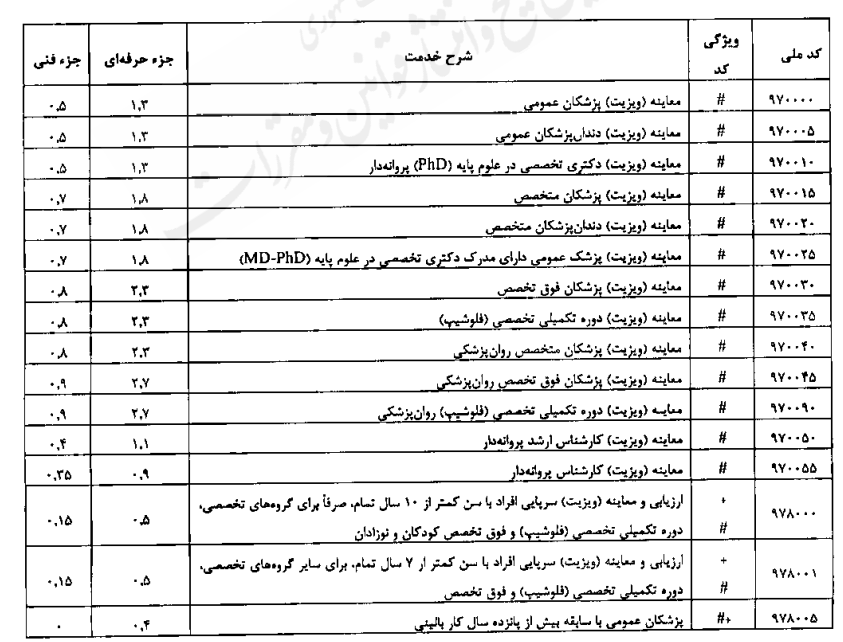 کد ملی | ویژگی کد | شرح خدمت | جزء حرفه‌ای | جزء فنی
۹۷۰۰۰۰ | # | معاینه (ویزیت) پزشکان عمومی | ۱,۳ | ۰,۵
۹۷۰۰۰۵ | # | معاینه (ویزیت) دندان‌پزشکان عمومی | ۱,۳ | ۰,۵
۹۷۰۰۱۰ | # | معاینه (ویزیت) دکتری تخصصی در علوم پایه (PhD) پروانه‌دار | ۱,۳ | ۰,۵
۹۷۰۰۱۵ | # | معاینه (ویزیت) پزشکان متخصص | ۱,۸ | ۰,۷
۹۷۰۰۲۰ | # | معاینه (ویزیت) دندان‌پزشکان متخصص | ۱,۸ | ۰,۷
۹۷۰۰۲۵ | # | معاینه (ویزیت) پزشک عمومی دارای مدرک دکتری تخصصی در علوم پایه (MD-PhD) | ۱,۸ | ۰,۷
۹۷۰۰۳۰ | # | معاینه (ویزیت) پزشکان فوق تخصص | ۲,۳ | ۰,۸
۹۷۰۰۳۵ | # | معاینه (ویزیت) دوره تکمیلی تخصصی (فلوشیپ) | ۲,۳ | ۰,۸
۹۷۰۰۴۰ | # | معاینه (ویزیت) پزشکان متخصص روان‌پزشکی | ۲,۳ | ۰,۸
۹۷۰۰۴۵ | # | معاینه (ویزیت) پزشکان فوق تخصص روان‌پزشکی | ۲,۷ | ۰,۹
۹۷۰۰۹۰ | # | معاینه (ویزیت) دوره تکمیلی تخصصی (فلوشیپ) روان‌پزشکی | ۲,۷ | ۰,۹
۹۷۰۰۵۰ | # | معاینه (ویزیت) کارشناس ارشد پروانه‌دار | ۱,۱ | ۰,۴
۹۷۰۰۵۵ | # | معاینه (ویزیت) کارشناس پروانه‌دار | ۰,۹ | ۰,۳۵
۹۷۸۰۰۰ | + # | ارزیابی و معاینه (ویزیت) سرپایی افراد با سن کمتر از ۱۰ سال تمام، صرفاً برای گروه‌های تخصصی،
دوره تکمیلی تخصصی (فلوشیپ) و فوق تخصص کودکان و نوزادان | ۰,۵ | ۰,۱۵
۹۷۸۰۰۱ | + # | ارزیابی و معاینه (ویزیت) سرپایی افراد با سن کمتر از ۷ سال تمام، برای سایر گروه‌های تخصصی،
دوره تکمیلی تخصصی (فلوشیپ) و فوق تخصص | ۰,۵ | ۰,۱۵
۹۷۸۰۰۵ | #+ | پزشکان عمومی با سابقه بیش از پانزده سال کار بالینی | ۰,۴ | ۰